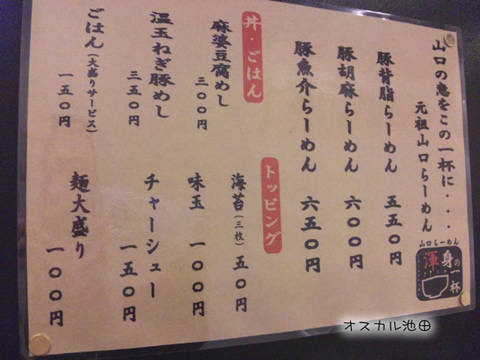 山口の恵をこの一杯に・・・
元祖山口らーめん
豚背脂らーめん 五五〇円
豚胡麻らーめん 六〇〇円
豚魚介らーめん 六五〇円
山口らーめん
渾身の一杯
丼・ごはん
麻婆豆腐めし 三〇〇円
温玉ねぎ豚めし 三五〇円
ごはん(大盛りサービス) 一五〇円
トッピング
海苔(三枚) 五〇円
味玉 一〇〇円
チャーシュー 一五〇円
麺大盛り 一〇〇円
オスカル池田